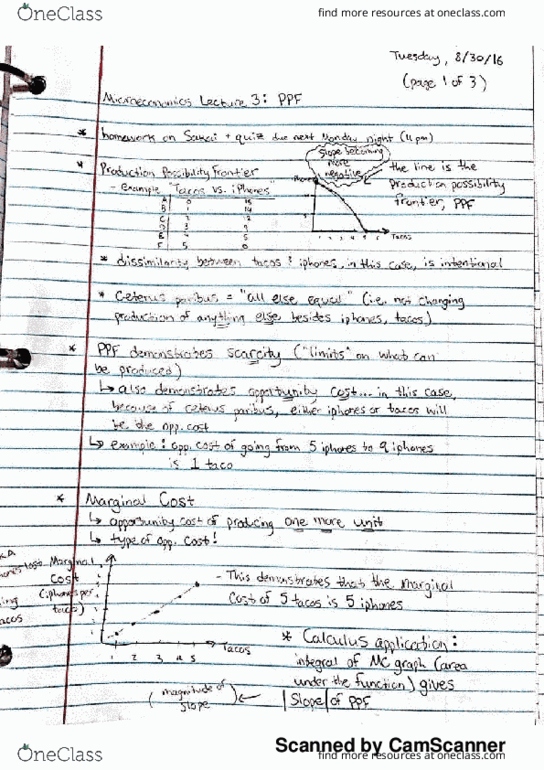 OneClass
find more resources at oneclass.com
Tuesday, 8/30/16
(page 1 of 3)
Microeconomics Lecture 3: PPF
* homework on Sakai + quiz due next Monday night (11 pm)
* Production Possibility Frontier
- example "Tacos vs. iPhones"
A 0 15
B 1 14
C 2
D 3
E 4 5
F 5 0
slope becoming
more
negative
Tacos
the line is the
production possibility
frontier, PPF
* dissimilarity between tacos & iphones, in this case, is intentional
* ceterus paribus = "all else equal" (i.e. not changing
production of anything else besides iphones, tacos)
* PPF demonstrates scarcity ("limits" on what can
be produced)
↳ also demonstrates opportunity cost... in this case,
because of ceterus paribus, either iphones or tacos will
be the opp. cost
↳ example: opp. cost of going from 5 iphones to 9 iphones
is 1 taco
* Marginal Cost
↳ opportunity cost of producing one more unit
↳ type of opp. cost!
Marginal
Cost
(iphones per
taco)
1 2 3 4 5
Tacos
- This demonstrates that the marginal
cost of 5 tacos is 5 iphones
* Calculus application:
integral of MC graph (area
under the function) gives
|Slope| of PPF
(magnitude of
slope)
Scanned by CamScanner
OneClass
find more resources at oneclass.com